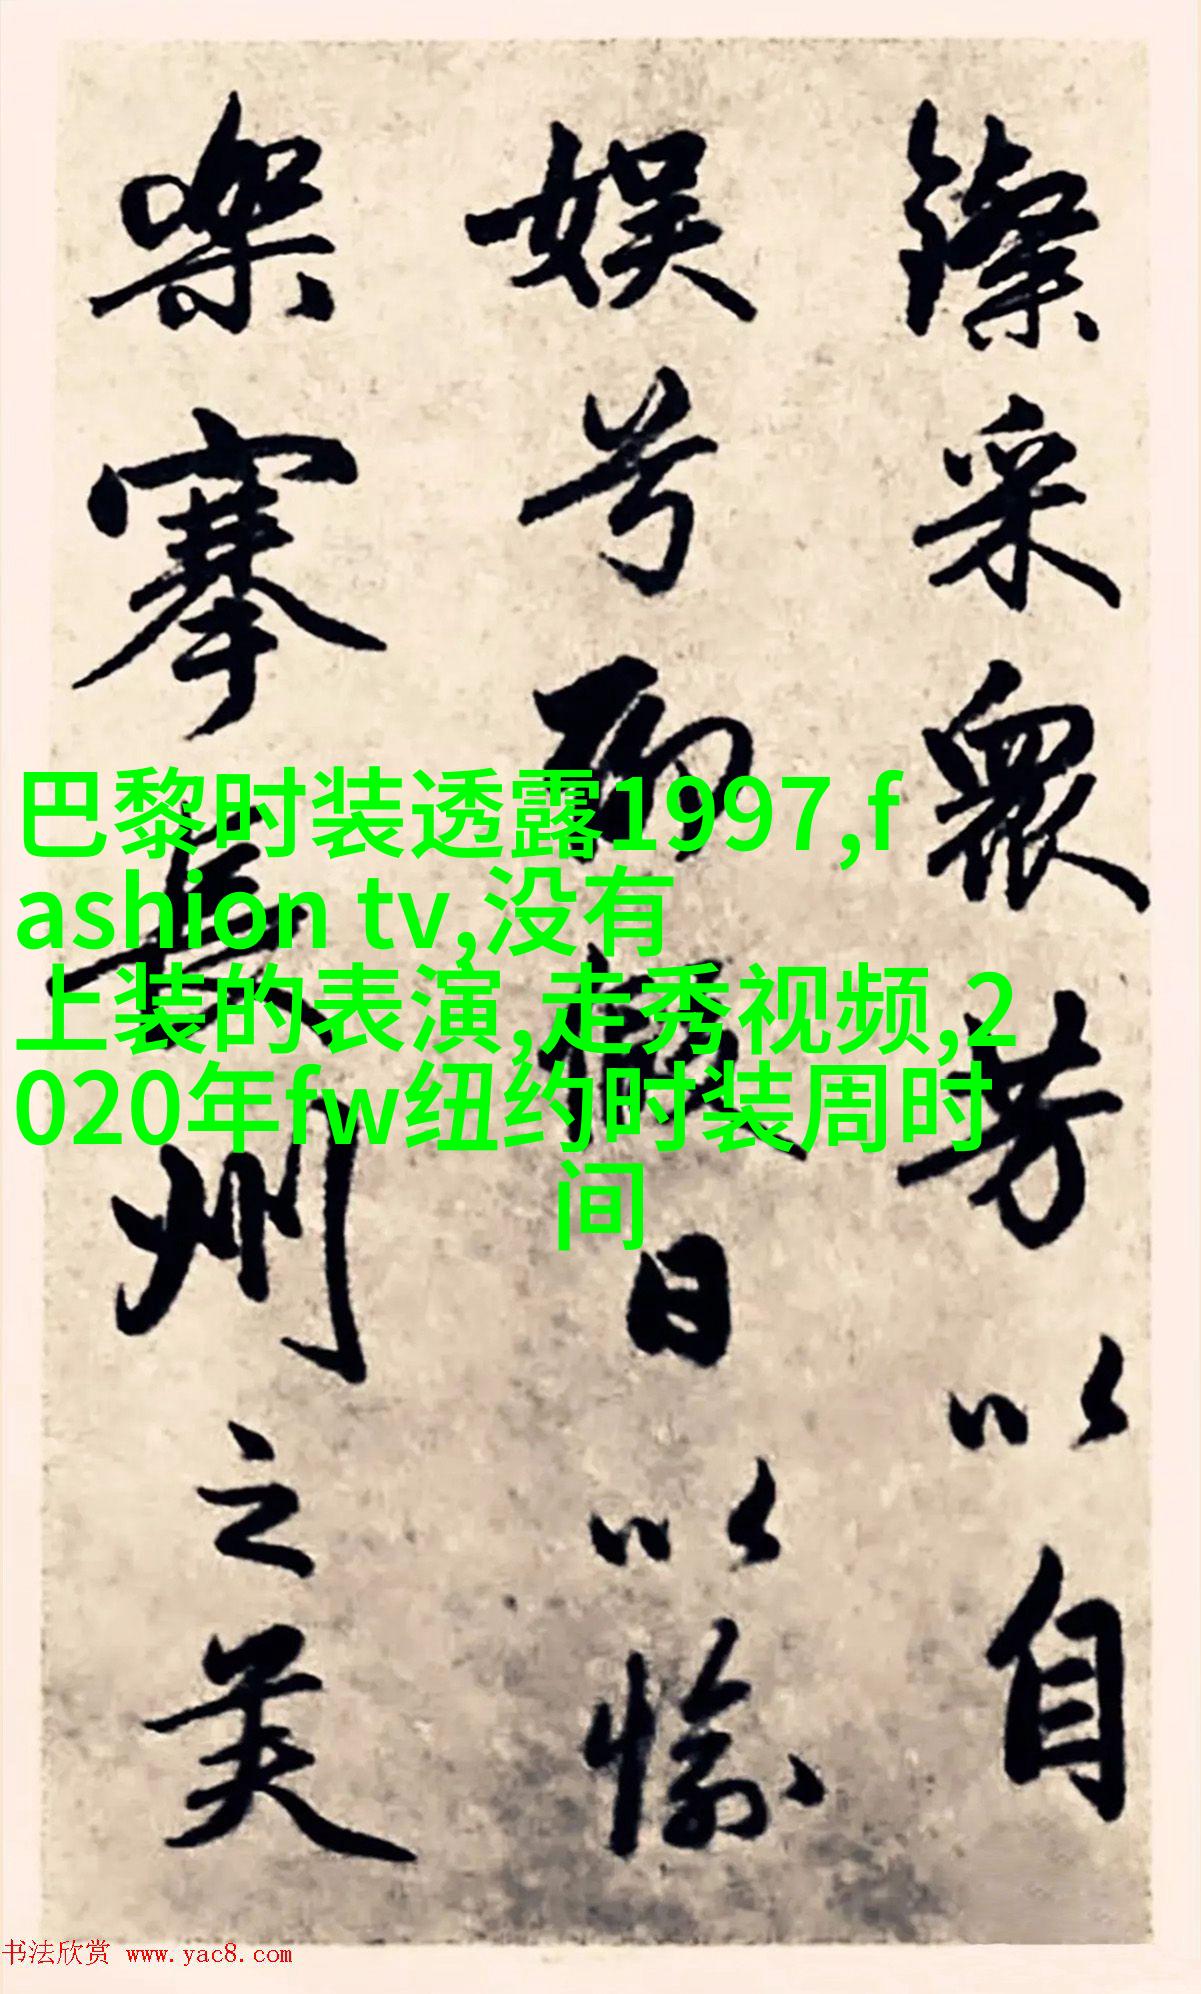 采衆芳以自
娱兮聊日以愉
樂搴長州之美
巴黎时装透露1997,f
ashion tv,没有
上装的表演,走秀视频,2
020年fw纽约时装周时
间
书法欣赏 www.yac8.com